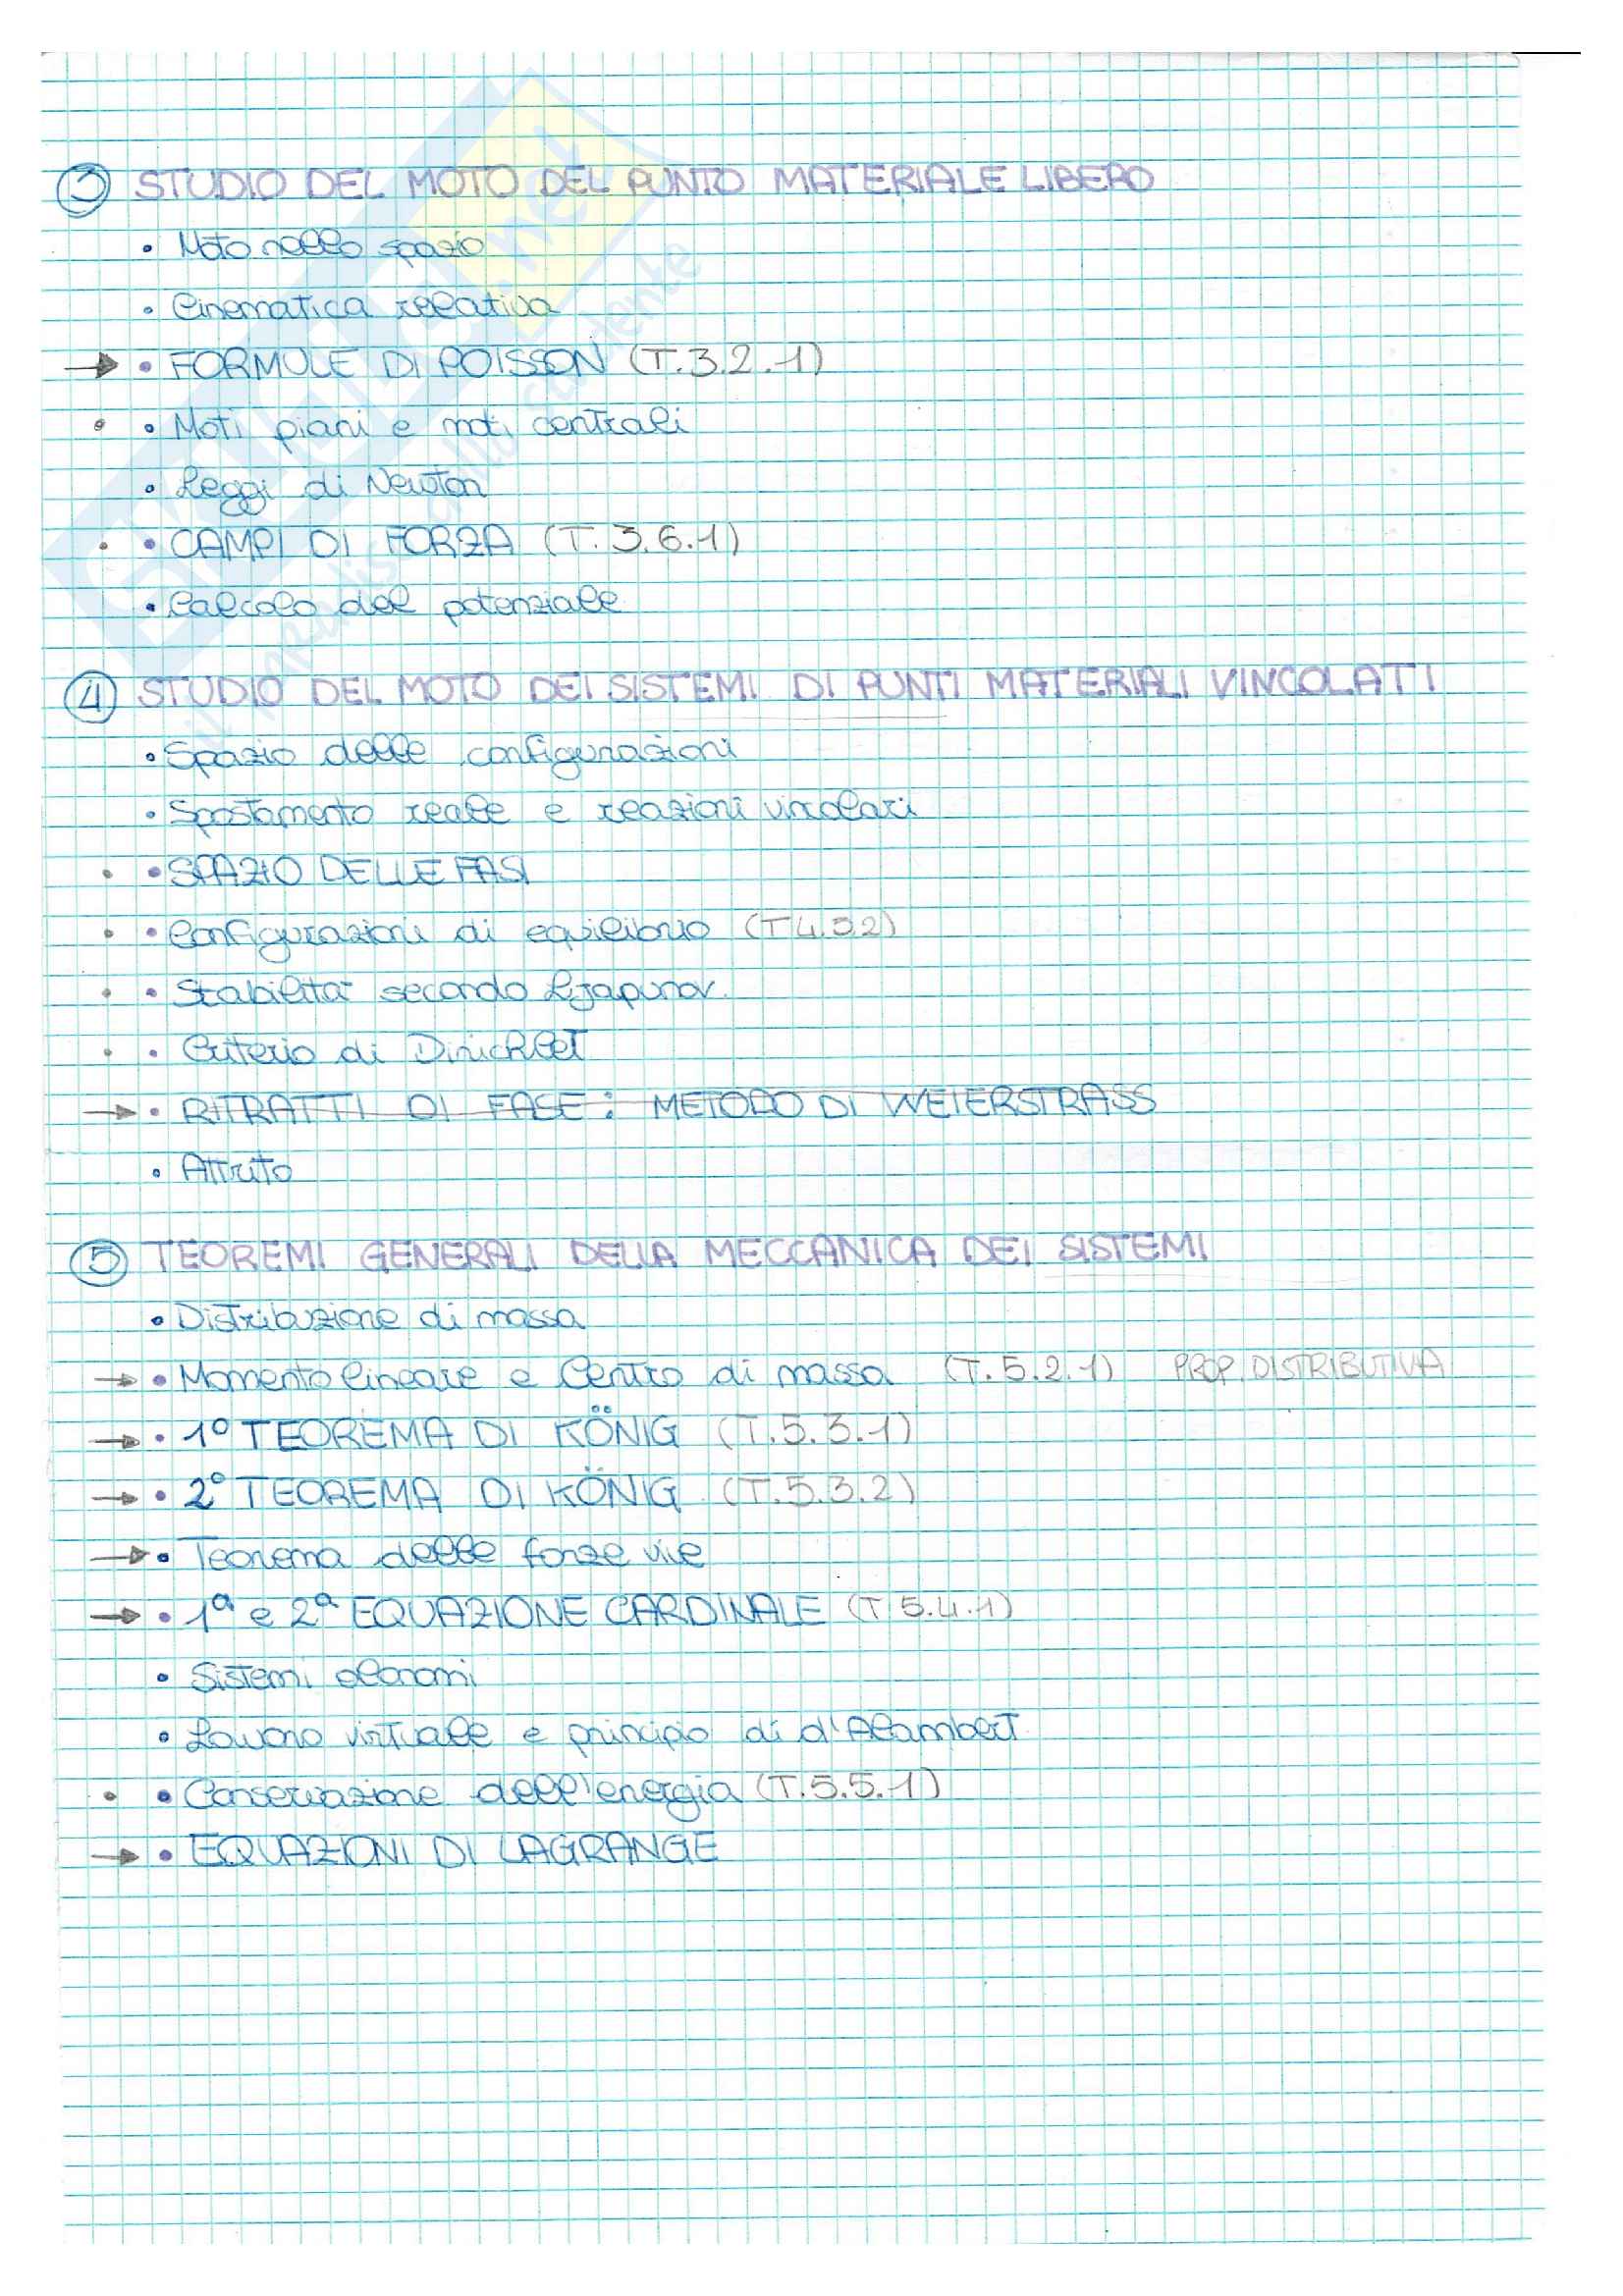 ③ STUDIO DEL MOTO DEL PUNTO MATERIALE LIBERO
• Moto nello spazio
• Cinematica relativa
→ • FORMULE DI POISSON (T.3.2.1)
• • Moti piani e moti centrali
• Leggi di Newton
• • CAMPI DI FORZA (T.3.6.1)
• Calcolo del potenziale
④ STUDIO DEL MOTO DEI SISTEMI DI PUNTI MATERIALI VINCOLATI
• Spazio delle configurazioni
• Spostamento reale e reazioni vincolari
• • SPAZIO DELLE FASI
• • Configurazioni di equilibrio (T4.3.2)
• • Stabilità secondo Ljapunov
• • Criterio di Dirichlet
→ • RITRATTI DI FASE: METODO DI WEIERSTRASS
• Attrito
⑤ TEOREMI GENERALI DELLA MECCANICA DEI SISTEMI
• Distribuzione di massa
→ • Momento lineare e Centro di massa (T.5.2.1) PROP. DISTRIBUTIVA
→ • 1° TEOREMA DI KÖNIG (T.5.3.1)
→ • 2° TEOREMA DI KÖNIG (T.5.3.2)
→ • Teorema delle forze vive
→ • 1ª e 2ª EQUAZIONE CARDINALE (T 5.4.1)
• Sistemi olonomi
• Lavoro virtuale e principio di d'Alambert
• • Conservazione dell'energia (T.5.5.1)
→ • EQUAZIONI DI LAGRANGE